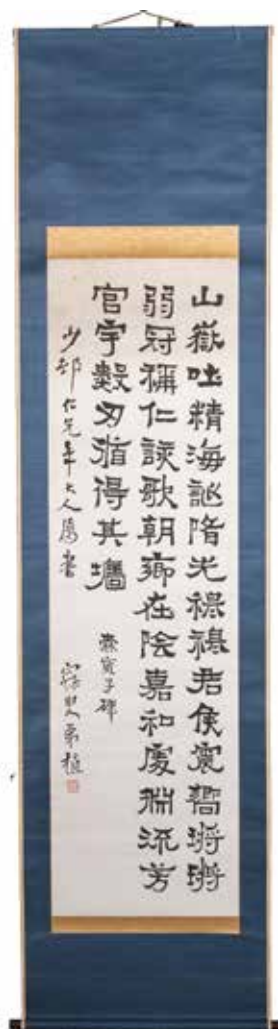 山嶽吐精海誕隋光穆穆君侯震響鏘鏘
弱冠稱仁詠歌朝鄉在陰嘉和處淵流芳
宮宇數刃循得其墻 爨寶子碑
少邨仁兄年大人屬書 寐叟弟植